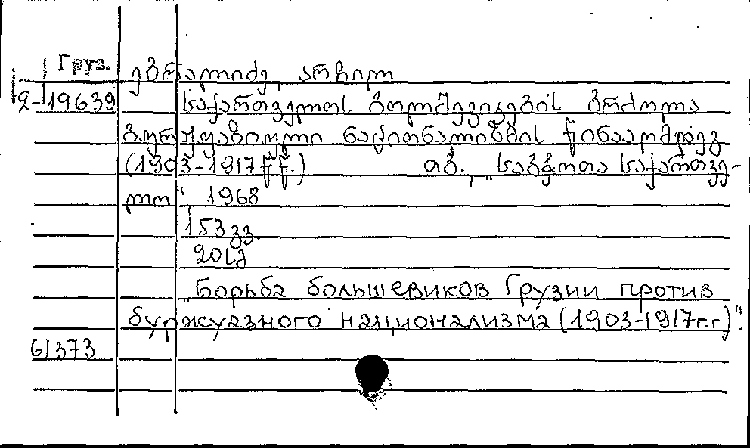 Груз.
ებრალიძე, არჩილ
2-19639
საქართველოს ბოლშევიკების ბრძოლა
ბურჟუაზიული ნაციონალიზმის წინააღმდეგ
(1903-1917 წწ.) თბ., "საბჭოთა საქართვე-
ლო", 1968
153 გვ.
"Борьба большевиков Грузии против
буржуазного национализма (1903-1917г.г.)".
61373